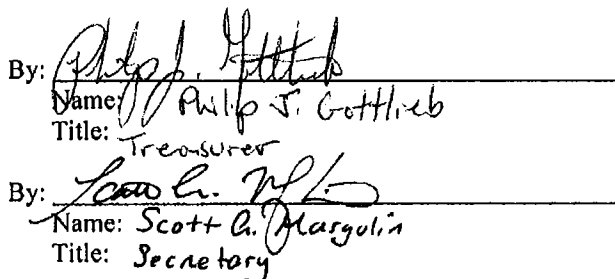 By: Philip J. Gottlieb
Name: Philip J. Gottlieb
Title: Treasurer
By: Scott A.
Name: Scott A. Margulin
Title: Secretary